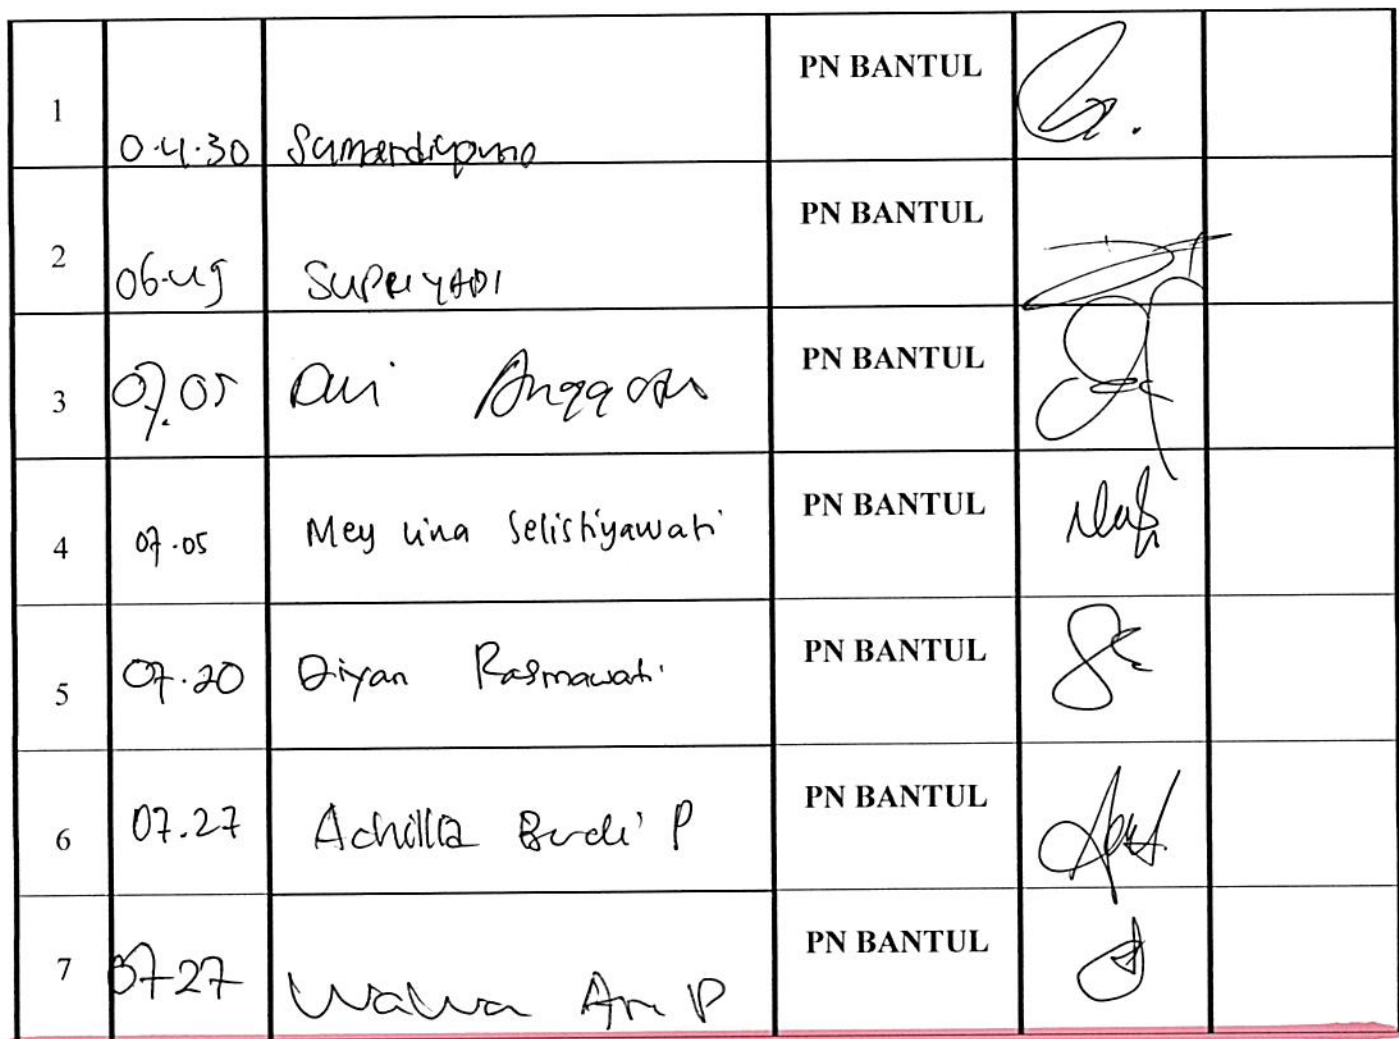 1 0.4.30 PN BANTUL
2 06.45 SUPRIYADI PN BANTUL
3 07.05 Dwi PN BANTUL
4 07.05 Mey Lina Selistiyawati PN BANTUL
5 07.20 Diyan Rasmawati PN BANTUL
6 07.27 Achilla Budi P PN BANTUL
7 07-27 P PN BANTUL